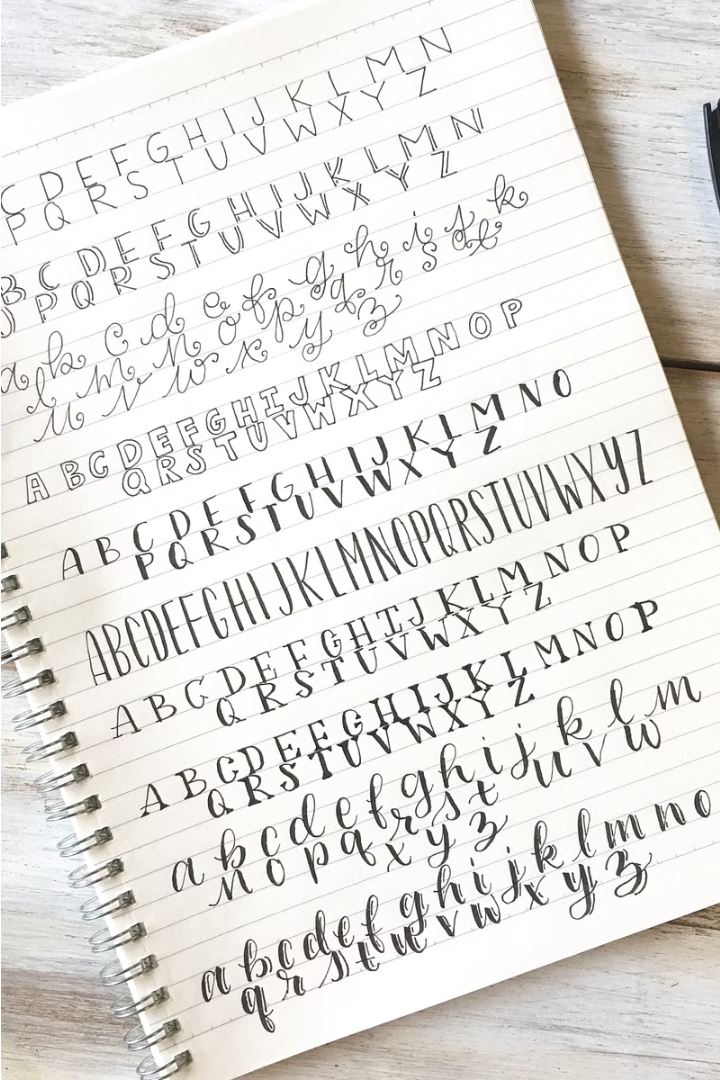 C D E F G H I J K L M N
P Q R S T U V W X Y Z
B C D E F G H I J K L M N
O P Q R S T U V W X Y Z
a b c d e f g h i j k
l m n o p q r s t
u v w x y z
A B C D E F G H I J K L M N O P
Q R S T U V W X Y Z
A B C D E F G H I J K L M N O
P Q R S T U V W X Y Z
A B C D E F G H I J K L M N O P Q R S T U V W X Y Z
A B C D E F G H I J K L M N O P
Q R S T U V W X Y Z
A B C D E F G H I J K L M N O P
Q R S T U V W X Y Z
a b c d e f g h i j k l m
n o p q r s t u v w
x y z
a b c d e f g h i j k l m n o
q r s t u v w x y z